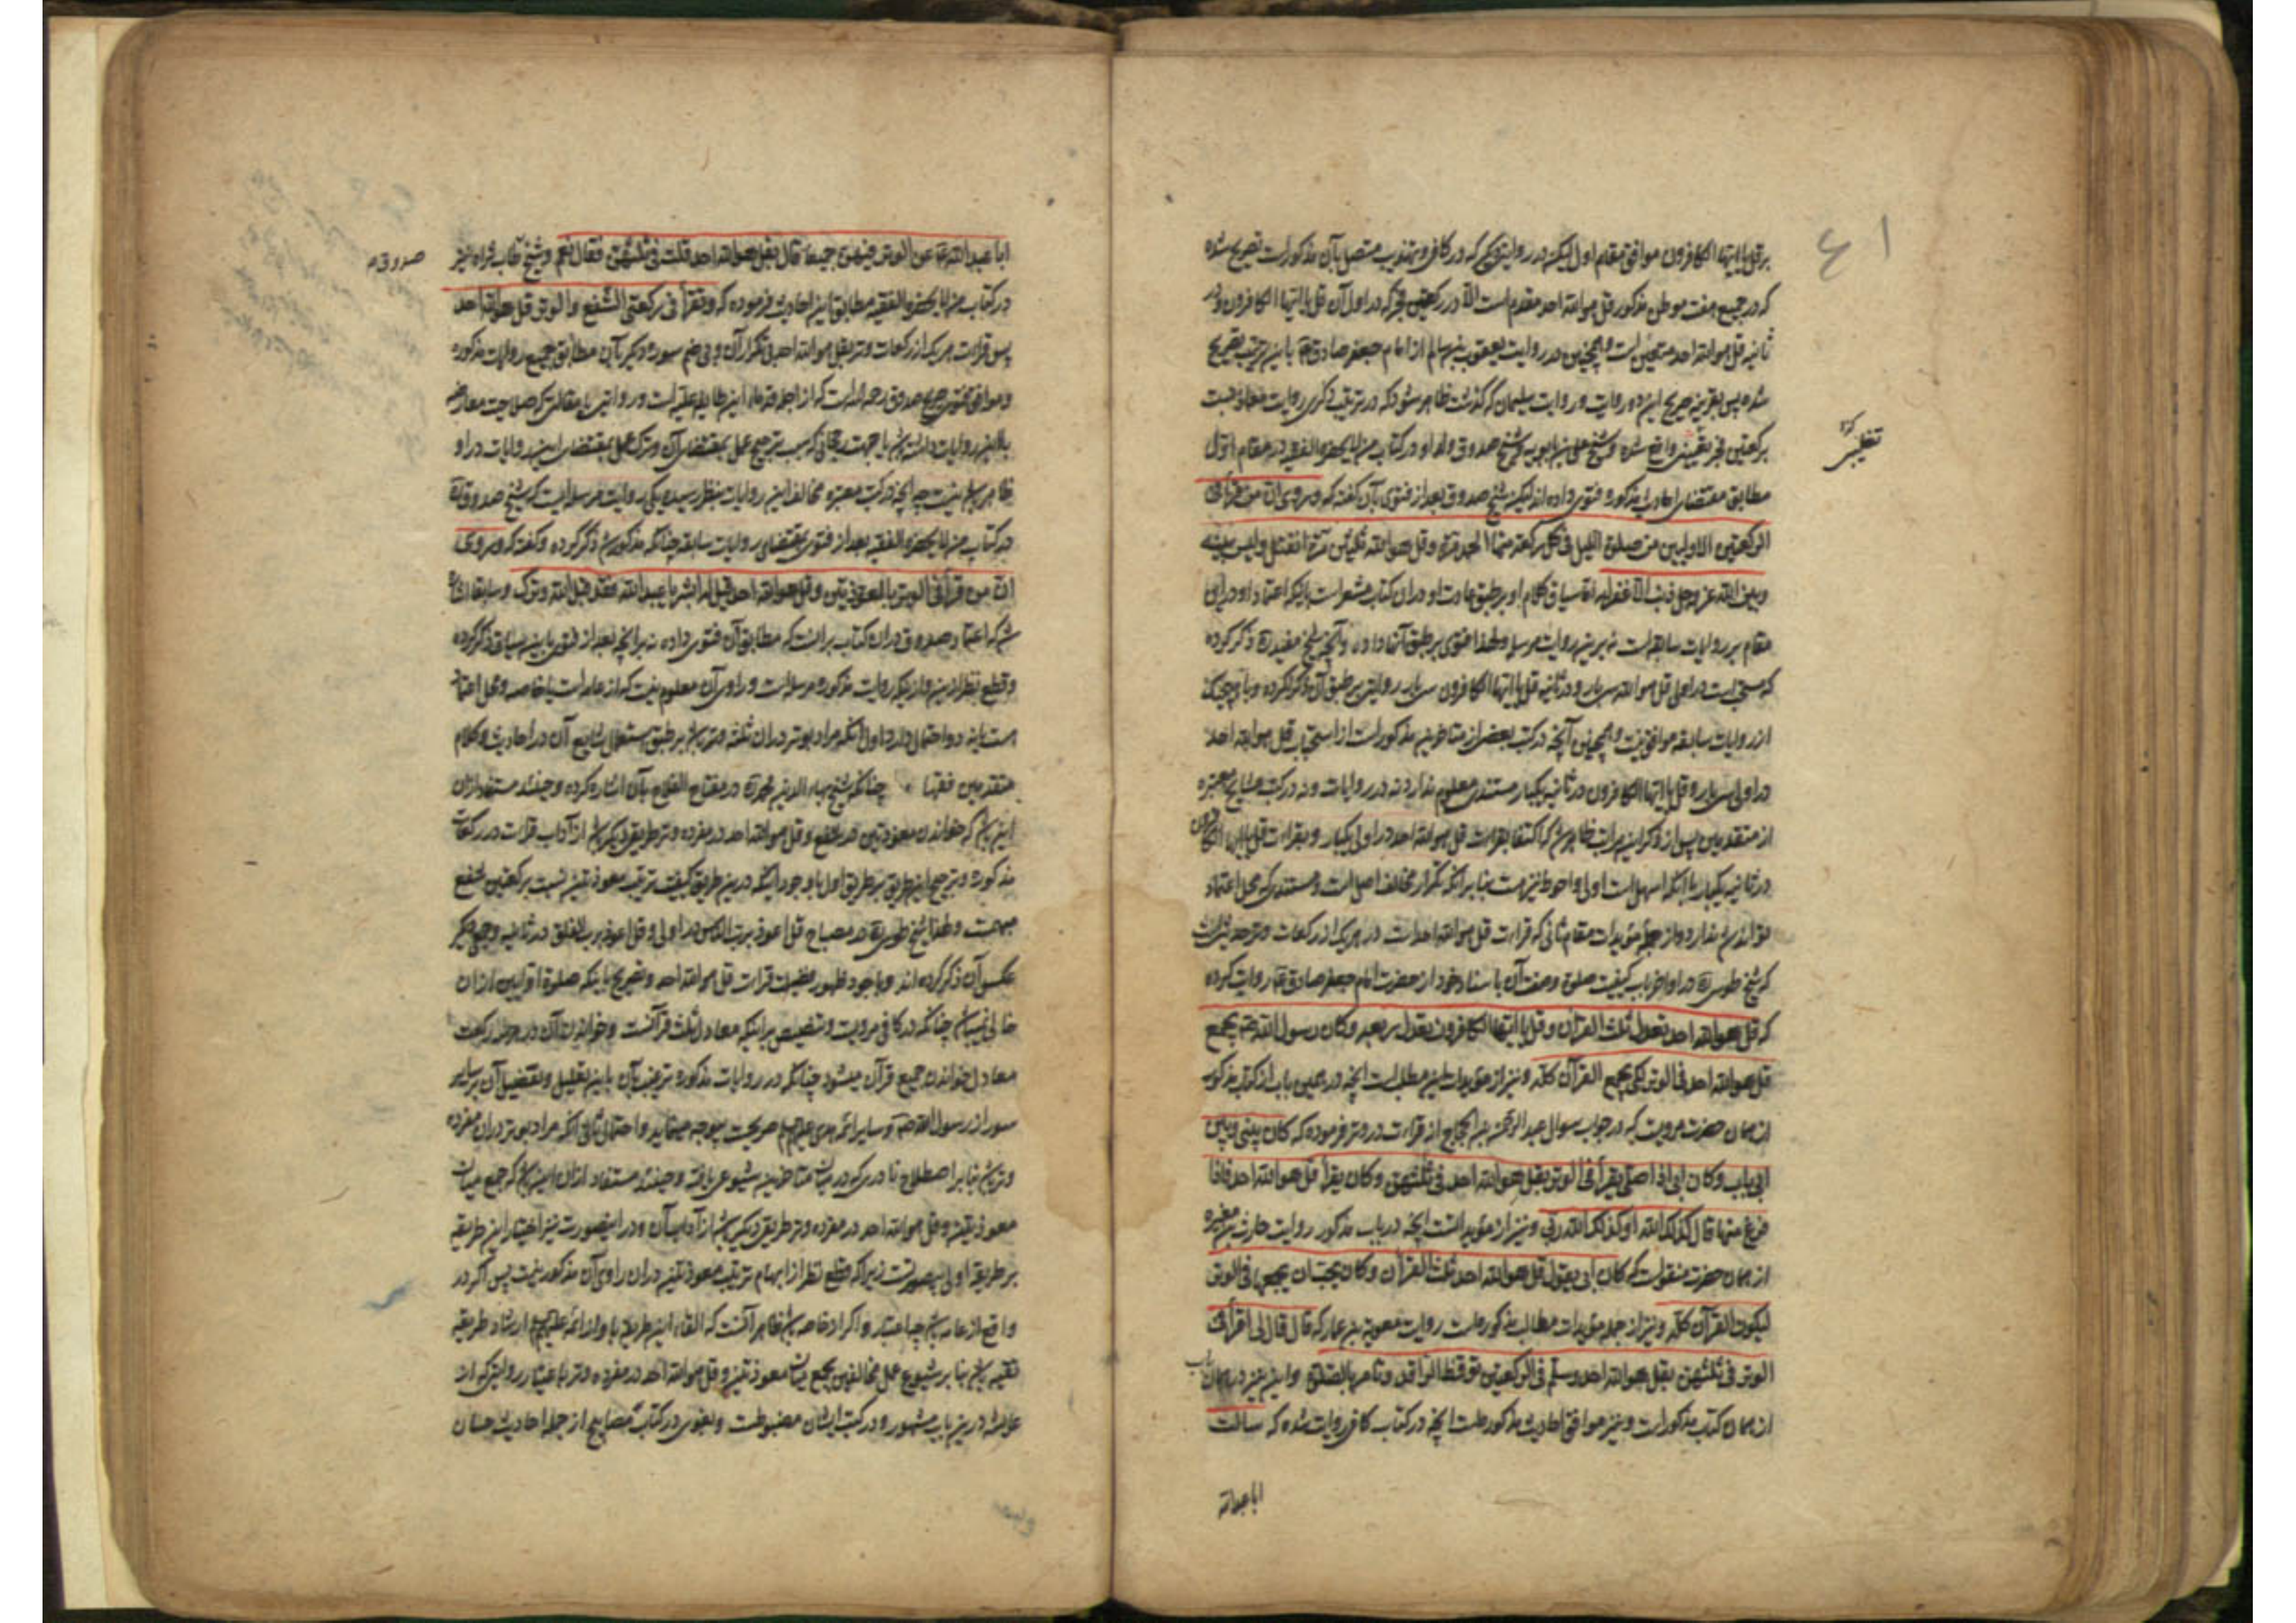 ۴۱
بر قل یا ایها الکافرون موافق مقام اول لیکن در روایتی که در کافی و تهذیب متصل بآن مذکور است تصریح شده
که در جمیع هفت موطن مذکور قل هو الله احد مقدم است الا در رکعتین فجر که در اول آن قل یا ایها الکافرون و در
ثانیه قل هو الله احد متعین است و همچنین در روایت یعقوب بن سالم از امام جعفر صادق ع باین ترتیب تصریح
شده پس بقرینه صریح این دو روایت در روایت سلیمان که گذشت ظاهر میشود که در ترتیب ذکری روایت معاذ نسبت
برکعتین فجر واقع شده و شیخ علی بن بابویه و شیخ صدوق ولد او در کتاب من لا یحضره الفقیه در مقام اول
مطابق مقتضای احادیث مذکوره فتوی داده اند لیکن شیخ صدوق بعد از فتوی بآن گفته که و روی ان من قرأ فی
الرکعتین الاولیین من صلوة اللیل فی کل رکعة منهما الحمد مرة و قل هو الله ثلثین مرة انفتل و لیس بینه
و بین الله عز و جل ذنب الا غفر له اما سیاق کلام او بر طبق عادت او در آن کتاب مشعر است باینکه اعتماد او در این
مقام بر روایات سابقه است نه برین روایت مرسله و لهذا فتوی بر طبق آنها داده و آنچه شیخ مفید ره ذکر کرده
که مستحب است در اولی قل هو الله سی بار و در ثانیه قل یا ایها الکافرون سی بار روایتی بر طبق آن ذکر نکرده و با هیچ یک
از روایات سابقه موافق نیست و همچنین آنچه در کتب بعضی از متاخرین مذکور است از استحباب قل هو الله احد
در اولی سی بار و قل یا ایها الکافرون در ثانیه یکبار مستندی معلوم ندارد نه در روایات و نه در کتب مشایخ معتبره
از متقدمین پس از ذکر این مراتب ظاهر شد که اکتفا بقراءت قل هو الله احد در اولی یکبار و بقراءت قل یا ایها الکافرون
در ثانیه یکبار با آنکه اسهل است اولی و احوط نیز هست بنا بر آنکه تکرار مخالف اصل است و مستندی که محل اعتماد
تواند شد ندارد و از جمله مؤیدات مقام ثانی که قراءت قل هو الله احد است در هر یک از رکعات وتر حدیثی است
که شیخ طوسی ره در اواخر باب کیفیت صلوة و صفت آن باسناد خود از حضرت امام جعفر صادق ع روایت کرده
که قل هو الله احد تعدل ثلث القرآن و قل یا ایها الکافرون تعدل ربعه و کان رسول الله ص یجمع
قل هو الله احد فی الوتر لکی یجمع القرآن کله و نیز از مؤیدات این مطلب است آنچه در همین باب از کتاب مذکور
از همان حضرت مرویست که در جواب سوال عبد الرحمن بن الحجاج از قراءت در وتر فرموده که کان بینی و بین
ابی باب و کان ابی اذا صلی یقرأ فی الوتر بقل هو الله احد فی ثلثهن و کان یقرأ قل هو الله احد فاذا
فرغ منها قال کذلک الله او کذلک الله ربی و نیز از مؤیدات است آنچه در باب مذکور روایت حارث بن مغیره
از همان حضرت منقولست که کان ابی یقول قل هو الله احد ثلث القرآن و کان یحب ان یجمعها فی الوتر
لیکون القرآن کله و نیز از جمله مؤیدات مطالب مذکوره است روایت معویة بن عمار که قال قال لی اقرأ فی
الوتر فی ثلثهن بقل هو الله احد و سلم فی الرکعتین توقظ الراقد و تأمر بالصلوة و این نیز در همان باب
از همان کتاب مذکور است و نیز موافق احادیث مذکوره است آنچه در کتاب کافی روایت شده که سالت
ابا عبد الله
ابا عبد الله ع عن الوتر فیهن جمیعا قال بقل هو الله احد قلت فی ثلثهن فقال نعم و شیخ طاب ثراه نیز
صدوق
در کتاب من لا یحضره الفقیه مطابق این احادیث فرموده که و تقرأ فی رکعتی الشفع و الوتر قل هو الله احد
پس قراءت هر یک از رکعات وتر بقل هو الله احد بی تکرار آن و بی ضم سوره دیگر بآن مطابق جمیع روایات مذکوره
و موافق فتوی صریح صدوق رحمه الله است که از اجله قدماء این طایفه علیه است و روایتی یا مقالی که صلاحیت معارضه
با این روایات داشته باشد یا جهت رجحانی که سبب ترجیح عمل بمقتضای آن و ترک عمل بمقتضای این روایات در او
ظاهر باشد نیست چه آنچه در کتب معتبره مخالف این روایات بنظر رسیده یکی روایت مرسله ایست که شیخ صدوق ره
در کتاب من لا یحضره الفقیه بعد از فتوی بمقتضای روایات سابقه چنانکه مذکور شد ذکر کرده و گفته که و روی
ان من قرأ فی الوتر بالمعوذتین و قل هو الله احد قیل له ابشر یا عبد الله فقد قبل الله وترک و سابقا اشاره
شد که اعتماد صدوق در آن کتاب بر آنست که مطابق آن فتوی داده نه بر آنچه بعد از فتوی باین سیاق ذکر کرده
و قطع نظر ازین و از اینکه روایت مذکوره مرسله است و راوی آن معلوم نیست که از عامه است یا خاصه و محل اعتماد
هست یا نه دو احتمال دارد اول آنکه مراد بوتر در آن ثلثه وتر باشد بر طبق استعمال شایع آن در احادیث و کلام
متقدمین فقها چنانکه شیخ بهاء الدین محمد ره در مفتاح الفلاح بآن اشاره کرده و حینئذ مستفاد از آن
این باشد که خواندن معوذتین در شفع و قل هو الله احد در مفرده وتر طریق دیگر باشد از آداب قراءت در رکعات
مذکوره و ترجیح این طریق بر طریق اول با وجود آنکه درین طریق کیفیت ترتیب معوذتین نسبت برکعتین شفع
مبهمست و لهذا شیخ طوسی ره در مصباح قل اعوذ برب الناس در اولی و قل اعوذ برب الفلق در ثانیه و جمعی دیگر
عکس آن ذکر کرده اند و با وجود ظهور فضیلت قراءت قل هو الله احد و تصریح باینکه صلوة اوابین از آن
خالی نمیباشد چنانکه در کافی مرویست و تنصیص بر اینکه معادل ثلث قرآنست و خواندن آن در سه رکعت
معادل خواندن جمیع قرآن میشود چنانکه در روایات مذکوره ترغیب بآن باین تعلیل و تفضیل آن بر سایر
سور از رسول الله ص و سایر ائمه هدی علیهم السلام صریحست بیوجه مینماید و احتمال ثانی آنکه مراد بوتر در آن مفرده
وتر باشد بنا بر اصطلاح نادری که در میان متاخرین شیوعی یافته و حینئذ مستفاد از آن این باشد که جمع میان
معوذتین و قل هو الله احد در مفرده وتر طریق دیگر باشد از آداب آن و در اینصورت نیز اختیار این طریقه
بر طریقه اولی بیصورتست زیرا که قطع نظر از ابهام ترتیب معوذتین در آن راوی آن مذکور نیست پس اگر در
واقع از عامه باشد چه اعتبار و اگر از خاصه باشد ظاهر آنست که القاء این طریق باو از ائمه علیهم السلام ارشاد طریقه
تقیه باشد بنا بر شیوع عمل مخالفین بجمع میان معوذتین و قل هو الله احد در مفرده وتر باعتبار روایتی که از
عایشه درین باب مشهور و در کتب ایشان مضبوطست و بغوی در کتاب مصابیح از جمله احادیث حسان